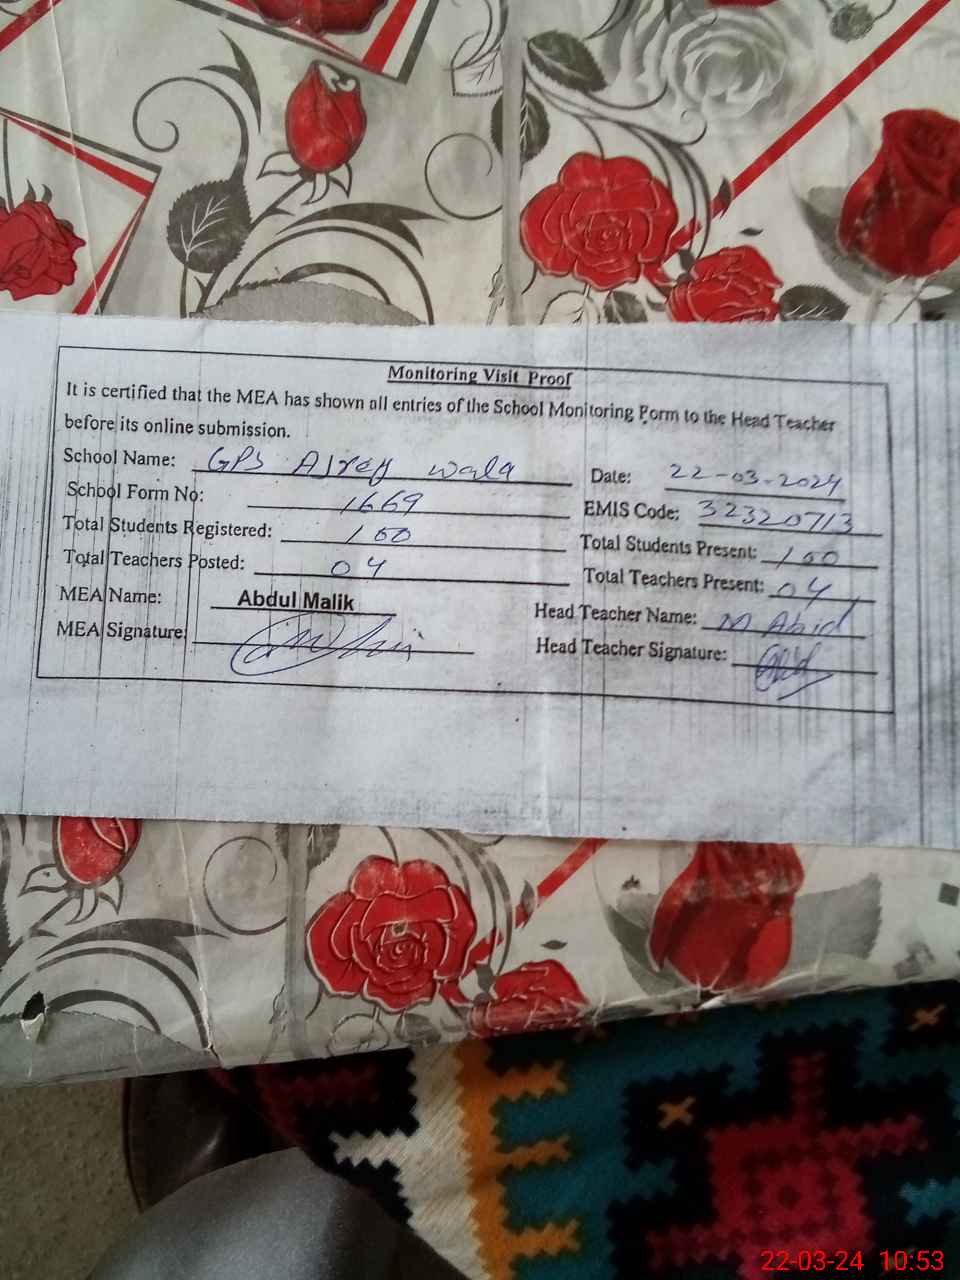 Monitoring Visit Proof
It is certified that the MEA has shown all entries of the School Monitoring Form to the Head Teacher
before its online submission.
School Name: GPS wala
Date: 22-03-2024
School Form No: 1669
EMIS Code: 32320713
Total Students Registered: 100
Total Students Present: 100
Total Teachers Posted: 04
Total Teachers Present: 04
MEA Name: Abdul Malik
Head Teacher Name: M Abid
MEA Signature:
Head Teacher Signature:
22-03-24 10:53